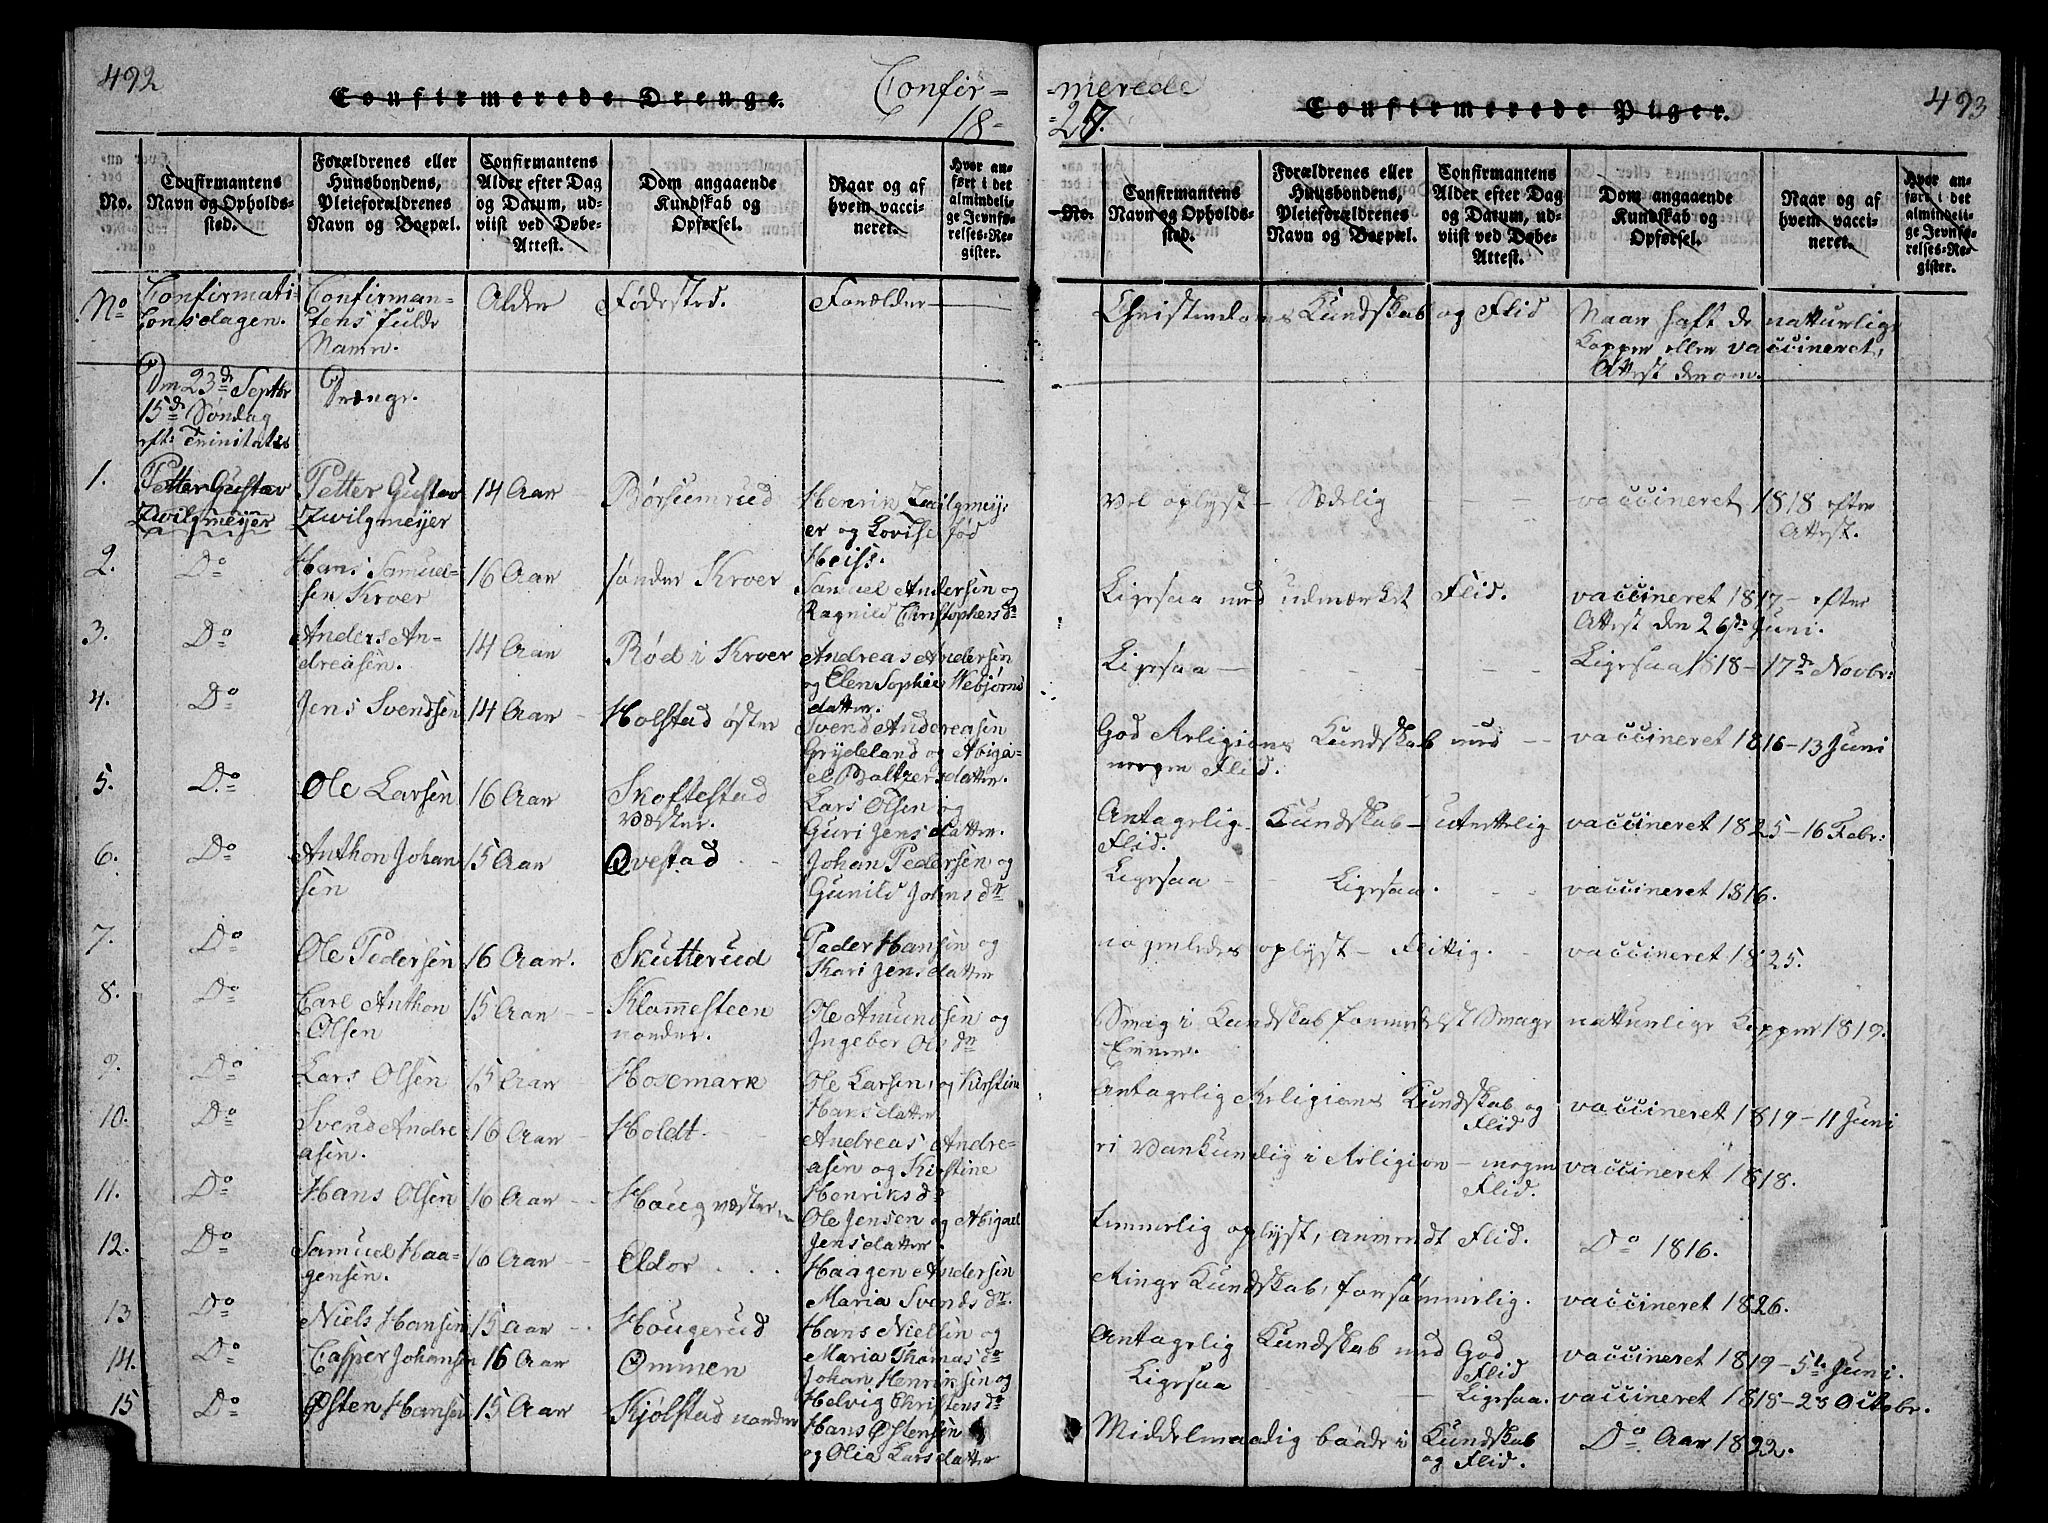 492
Confirmerede Drenge.
Confir-
18-
No.
Confirmantens Navn og Opholdssted.
Forældrenes eller Huusbondens, Pleieforældrenes Navn og Boepæl.
Confirmantens Alder efter Dag og Datum, udviist ved Døbe-Attest.
Dom angaaende Kundskab og Opførsel.
Naar og af hvem vaccineret.
Hvor anført i det almindelige Jevnførelses-Register.
No
Confirmationsdagen.
Confirmantens fulde Navn.
Alder
Fødested.
Forælder
Den 23de Septbr 15de Søndag eft: Trinitatis
Drænge.
1. Petter Gustav Zwilgmeijer
Petter Gustav Zwilgmeijer 14 Aar Børsumrud Henrik Zwilgmeijer og Lovise fød Heiss.
2. Do Hans Samuelsen Kroer 16 Aar sønder Kroer Samuel Andersen og Ragnild Christophersdr
3. Do Anders Andreasen. 14 Aar Rød i Kroer Andreas Andersen og Elen Sophie Webjørnsdatter.
4. Do Jens Svendsen 14 Aar Holstad øster Svend Andreasen Grydeland og Abigael Baltzersdatter.
5. Do Ole Larsen 16 Aar Skoftestad væster. Lars Olsen og Guri Jensdatter.
6. Do Anthon Johansen 15 Aar Qvestad Johan Pedersen og Gunild Johnsdr
7. Do Ole Pedersen 16 Aar. Skutterud Peder Hansen og Kari Jensdatter
8. Do Carl Anthon Olsen 15 Aar Klommesteen nordre. Ole Amundsen og Ingebor Olsdr
9. Do Lars Olsen 15 Aar Hosemark Ole Larsen, og Kirstine Hansdatter
10. Do Svend Andreasen. 16 Aar Holdt. Andreas Andreasen og Kirstine Henriksdr
11. Do Hans Olsen 16 Aar Houg væstre Ole Jensen og Abigael Jensdatter.
12. Do Samuel Haagensen. 16 Aar Eldor Haagen Andersen Maria Svendsdr.
13 Do Niels Hansen 15 Aar Hougerud Hans Nielsen og Maria Thomasdr
14. Do Casper Johansen 16 Aar Ommen Johan Henriksen og Helvig Christensdr
15 Do Østen Hansen 15 Aar Kjølstad nordre Hans Østensen og Olia Larsdatter
-merede
-27.
Confirmerede Piger.
493
No.
Confirmantens Navn og Opholdssted.
Forældrenes eller Huusbondens, Pleieforældrenes Navn og Boepæl.
Confirmantens Alder efter Dag og Datum, udviist ved Døbe-Attest.
Dom angaaende Kundskab og Opførsel.
Naar og af hvem vaccineret.
Hvor anført i det almindelige Jevnførelses-Register.
Christendoms Kundskab og Flid
Naar haft de naturlige Kopper eller vaccineret, Attest derom.
Vel oplyst - Sædelig vaccineret 1818 efter Attest.
Ligesaa med udmærket Flid. vaccineret 1817 - efter Attest den 26de Juni.
Ligesaa Ligesaa 1818 - 17de Novbr:
God Religions Kundskab med megen Flid. vaccineret 1816 - 13 Juni
Antagelig Kundskab - utrættelig Flid. vaccineret 1825 - 16 Febr:
Ligesaa Ligesaa. vaccineret 1816.
nogenledes oplyst - Flittig. vaccineret 1825.
Smag i Kundskab formedelst Svage naturlige Kopper 1819.
Antagelig Religions Kundskab og Flid vaccineret 1819 - 11 Juni
ei vankundig i Religion - megen Flid. vaccineret 1818.
temmelig oplyst, anvendt Flid. Do 1816.
Ringe Kundskab, forsømmelig. vaccineret 1826.
Antagelig Kundskab med God Flid vaccineret 1819 - 5te Juni.
Ligesaa Ligesaa. vaccineret 1818 - 28 Octobr.
Middelmaadig baade i Kundskab og Flid. Do Aar 1822.